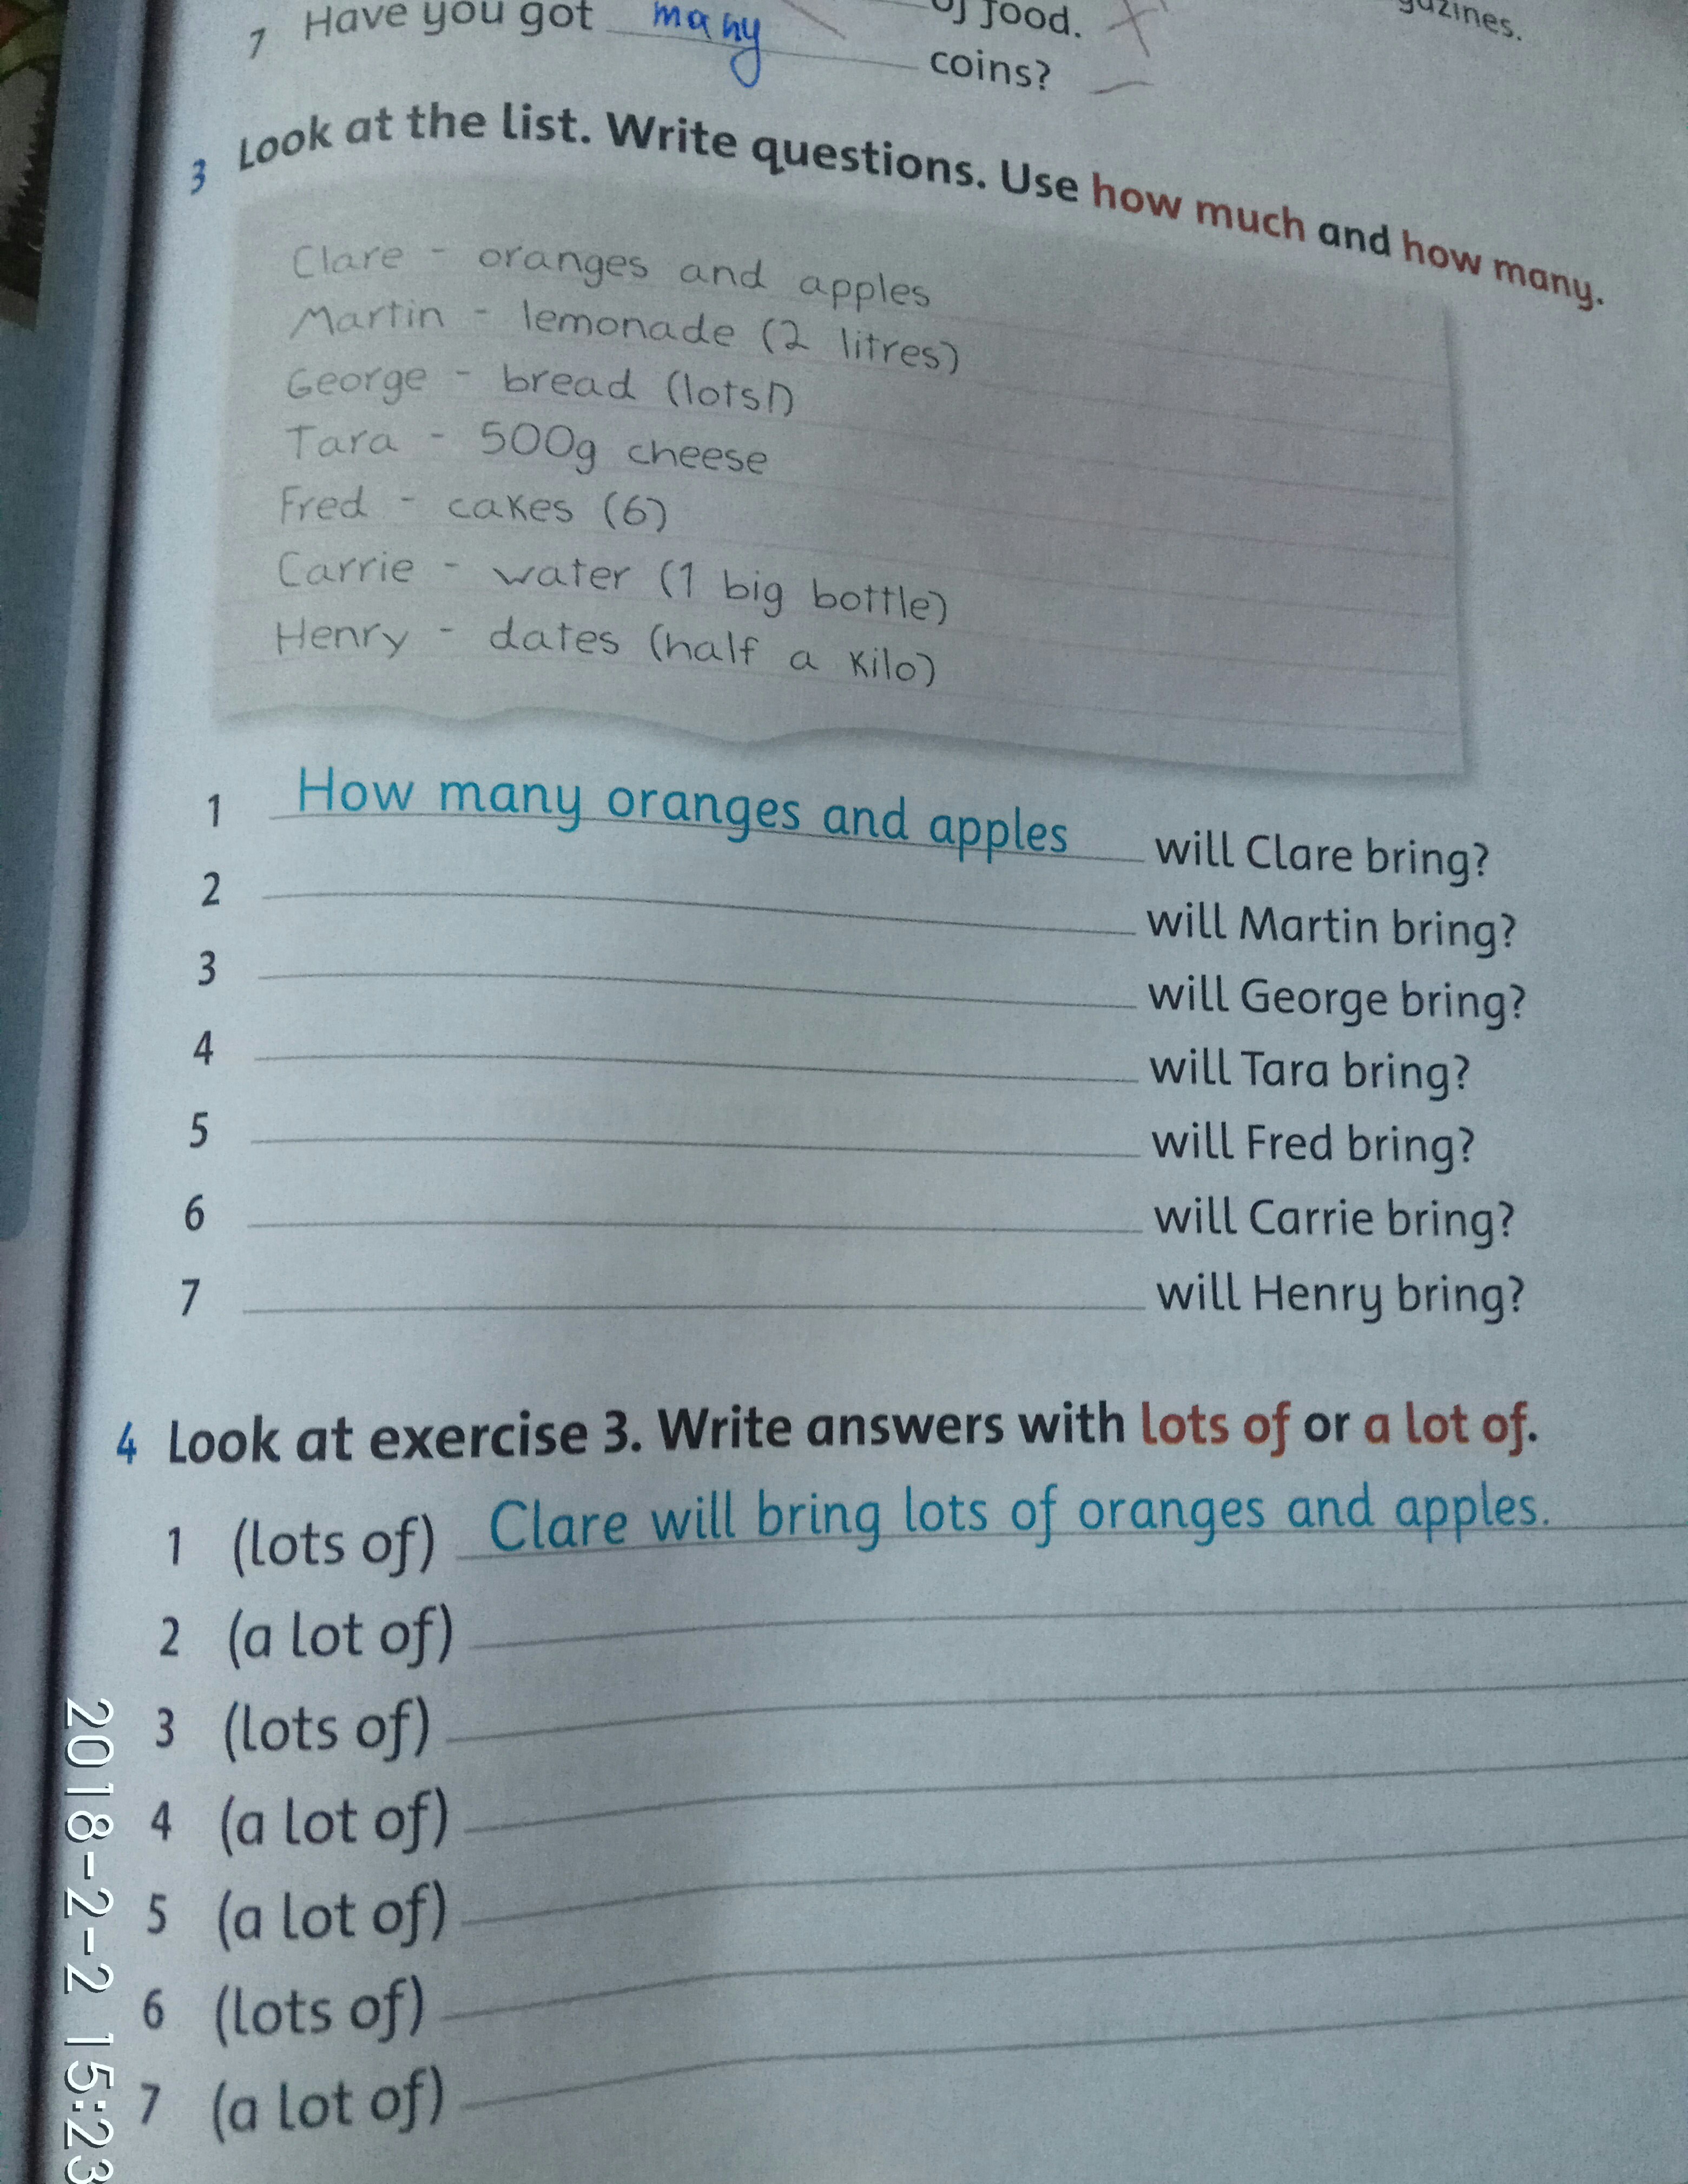 of food.
gazines.
7 Have you got many coins?
3 Look at the list. Write questions. Use how much and how many.
Clare - oranges and apples
Martin - lemonade (2 litres)
George - bread (lots!)
Tara - 500g cheese
Fred - cakes (6)
Carrie - water (1 big bottle)
Henry - dates (half a kilo)
1 How many oranges and apples will Clare bring?
2 will Martin bring?
3 will George bring?
4 will Tara bring?
5 will Fred bring?
6 will Carrie bring?
7 will Henry bring?
4 Look at exercise 3. Write answers with lots of or a lot of.
1 (lots of) Clare will bring lots of oranges and apples.
2 (a lot of)
3 (lots of)
4 (a lot of)
5 (a lot of)
6 (lots of)
7 (a lot of)
2018-2-2 15:23